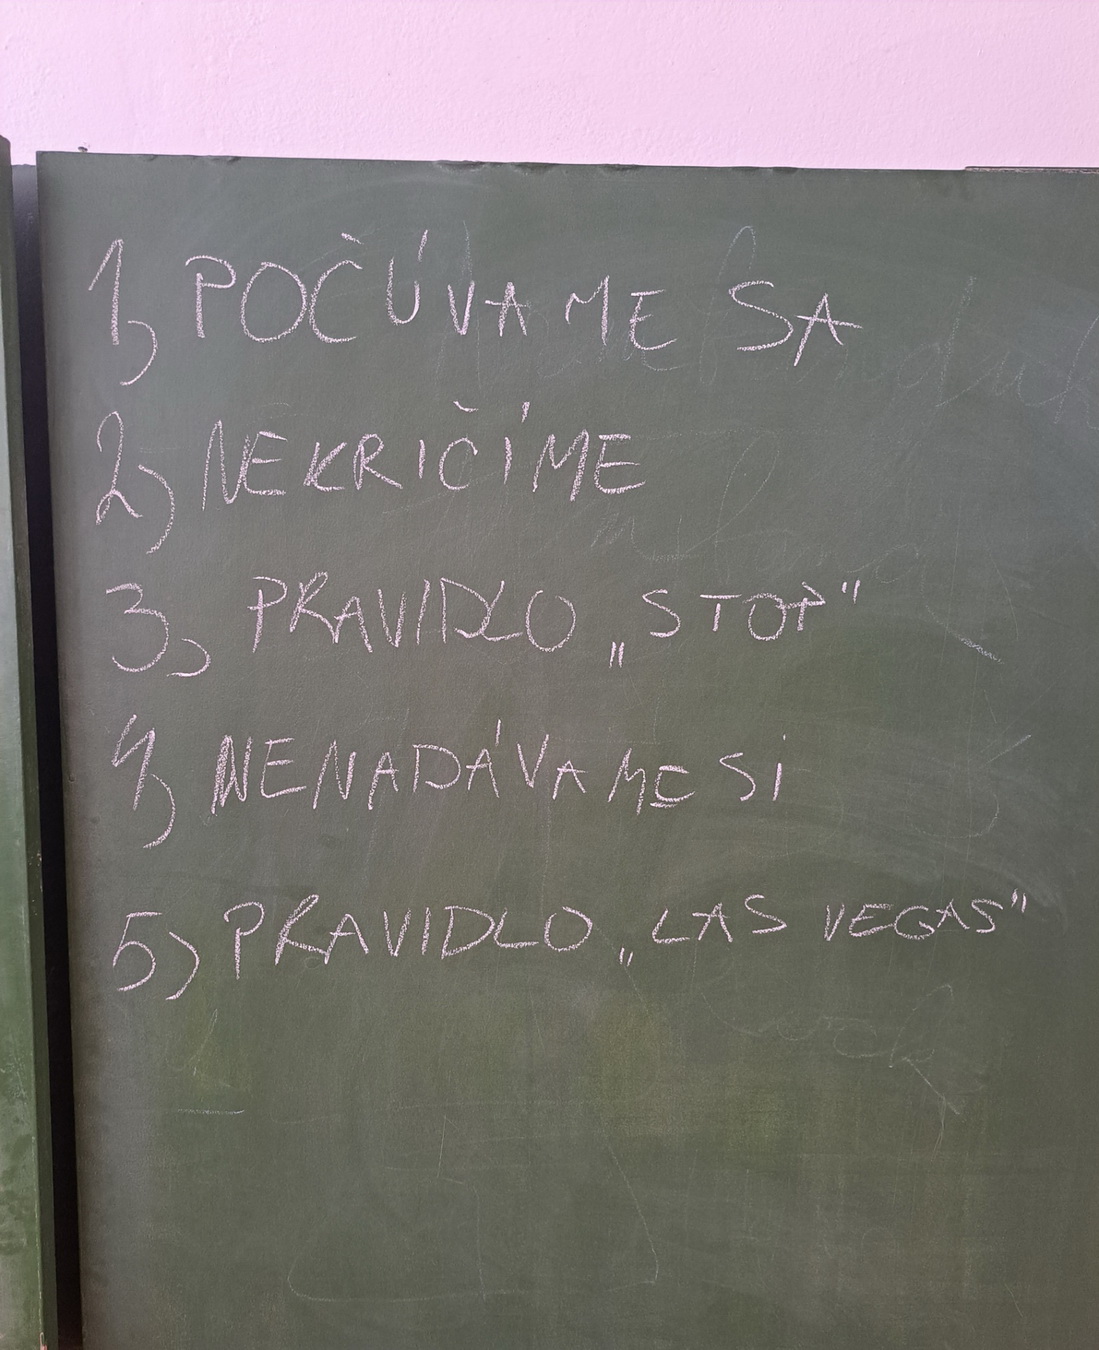 1) POČÚVAME SA
2) NEKRIČÍME
3) PRAVIDLO „STOP"
4) NENADÁVAME SI
5) PRAVIDLO „LAS VEGAS"